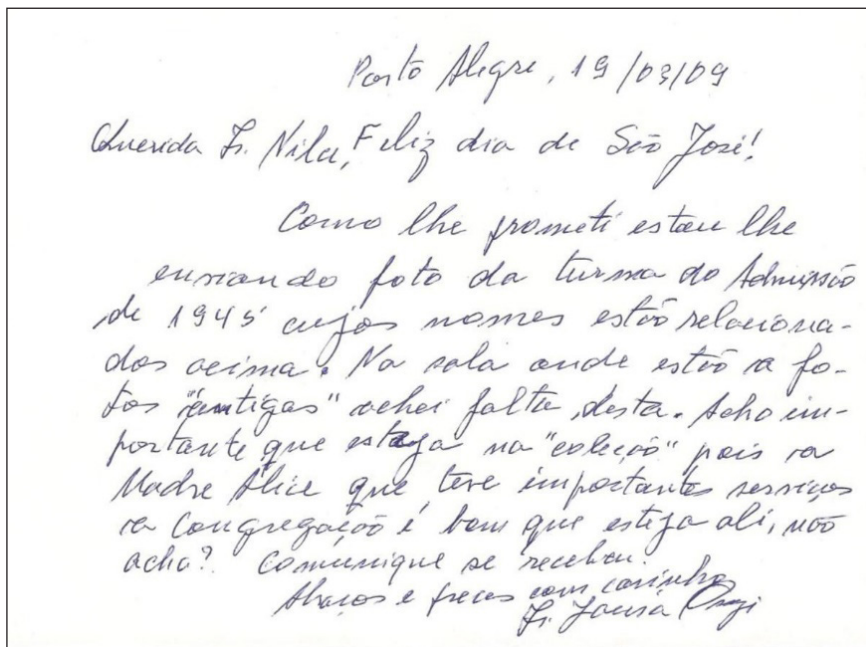 Porto Alegre, 19/03/09
Querida Ir. Nila, Feliz dia de São José!
Como lhe prometi estou lhe
enviando foto da turma do Admissão
de 1945 cujos nomes estão relaciona-
dos acima. Na sala onde estão a fo-
tos "antigas" achei falta desta. Acho im-
portante que esteja na "coleção" pois a
Madre Alice que teve importantes serviços
a Congregação é bom que esteja ali, não
acha? Comunique se recebeu.
Abraços e preces com carinho
Ir.